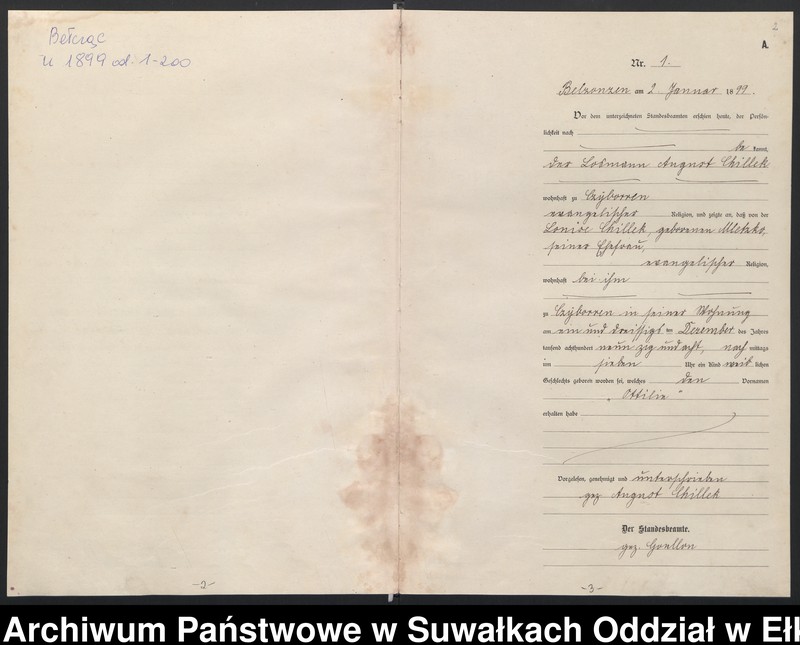 Bełcząc
U 1899 od 1-200
2
A.
Nr. 1.
Belzonzen am 2. Januar 1899.
Vor dem unterzeichneten Standesbeamten erschien heute, der Persön-
lichkeit nach
be kannt,
der Losmann August Chillek
wohnhaft zu Czyborren
evangelischer Religion, und zeigte an, daß von der
Louise Chillek, geborenen Mletzko,
seiner Ehefrau,
evangelischer Religion,
wohnhaft bei ihm
zu Czyborren in seiner Wohnung
am ein und dreissigsten Dezember des Jahres
tausend achthundert neun zig und acht, nach mittags
um sieben Uhr ein Kind weib lichen
Geschlechts geboren worden sei, welches den Vornamen
„Ottilie"
erhalten habe
Vorgelesen, genehmigt und unterschrieben
gez. August Chillek
Der Standesbeamte.
gez.
-2-
-3-
Archiwum Państwowe w Suwałkach Oddział w Ełk